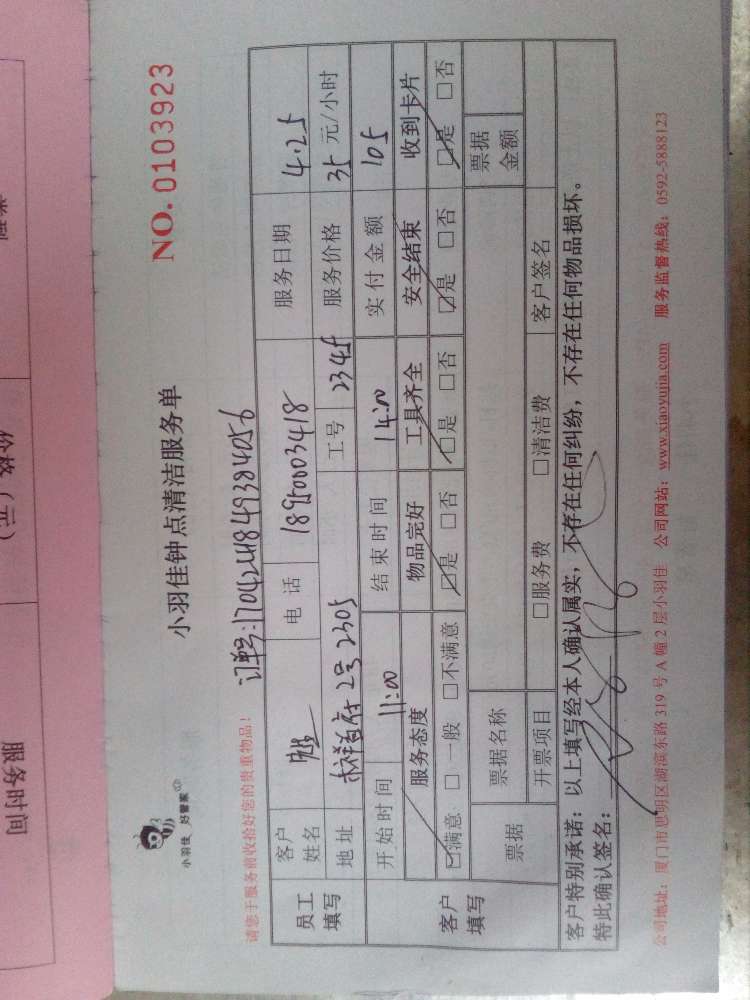 小羽佳 好管家
小羽佳钟点清洁服务单
NO. 0103923
请您于服务前收拾好您的贵重物品!
订单号:
员工填写
客户姓名
电话 18950003418
服务日期 4.25
地址 2号2305
工号 2345
服务价格 35 元/小时
客户填写
开始时间 11:00
结束时间 14:00
实付金额 105
服务态度 物品完好 工具齐全 安全结束 收到卡片
☑满意 □一般 □不满意 ☑是 □否 ☑是 □否 ☑是 □否 ☑是 □否
票据 票据名称 票据金额
开票项目 □服务费 □清洁费 客户签名
客户特别承诺:以上填写经本人确认属实,不存在任何纠纷,不存在任何物品损坏。
特此确认签名:
公司地址:厦门市思明区湖滨东路 319 号 A 幢 2 层小羽佳 公司网站:www.xiaoyujia.com 服务监督热线:0592-5888123
价格(元)
服务时间